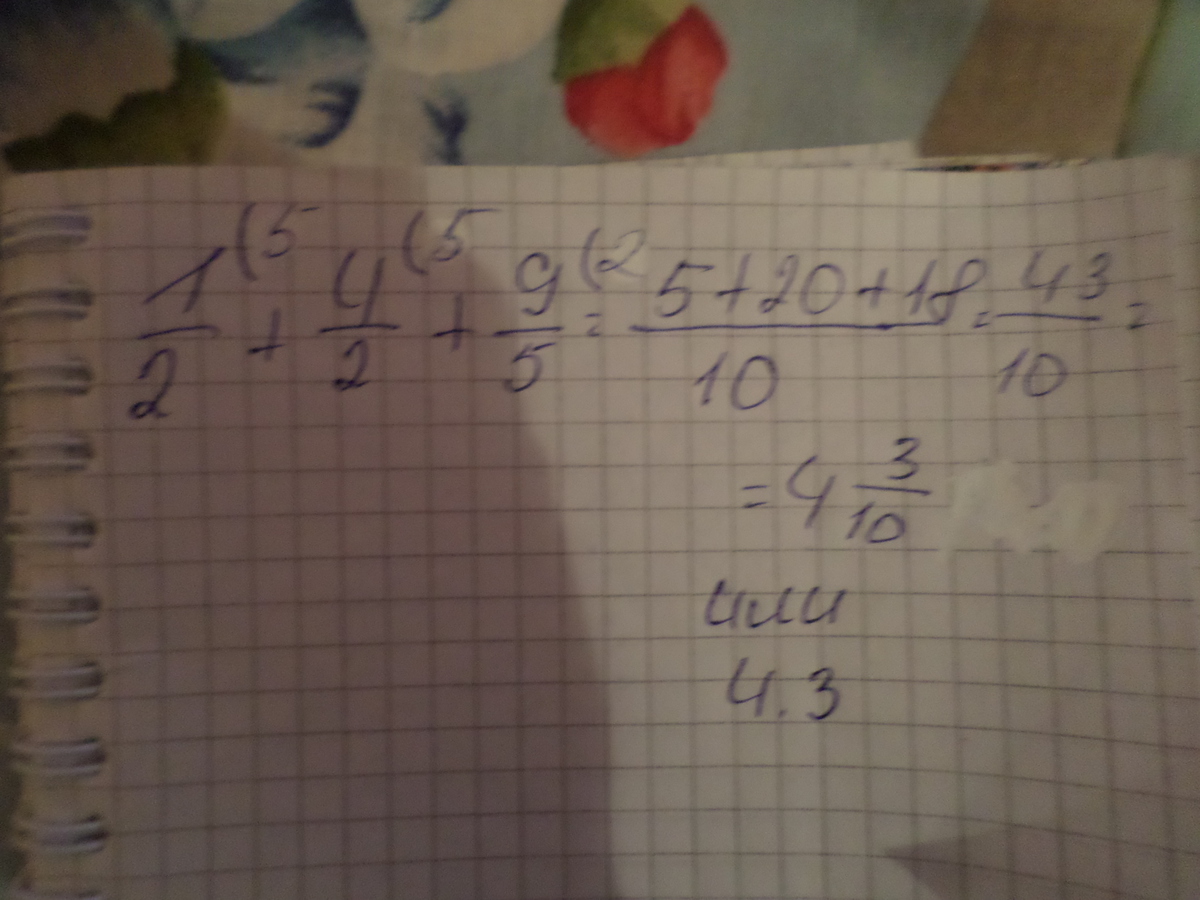 1/2 (5 + 4/2 (5 + 9/5 (2 = 5+20+18/10 = 43/10 =
= 4 3/10
или
4.3